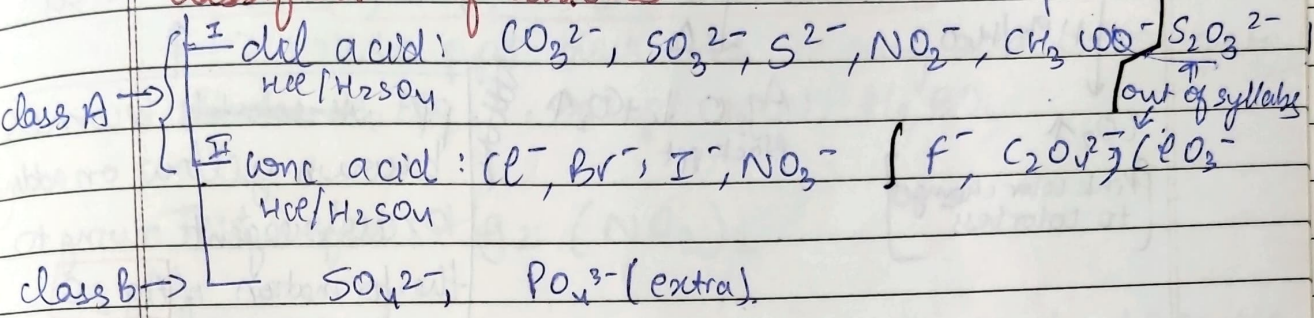 I dil acid: CO₃²⁻, SO₃²⁻, S²⁻, NO₂⁻, CH₃COO⁻ S₂O₃²⁻
HCl/H₂SO₄
out of syllabs
class A →
II conc acid: Cl⁻, Br⁻, I⁻, NO₃⁻ F⁻, C₂O₄²⁻, ClO₃⁻
HCl/H₂SO₄
class B → SO₄²⁻, PO₄³⁻ (extra).